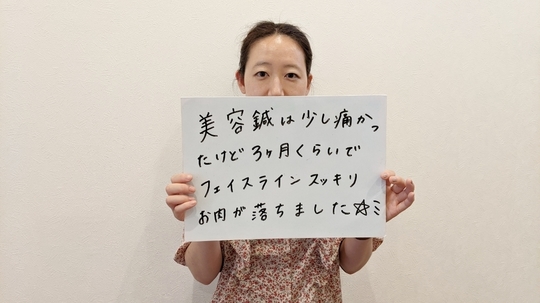 美容鍼は少し痛かっ
たけど3ヶ月くらいで
フェイスラインスッキリ
お肉が落ちました☆ミ